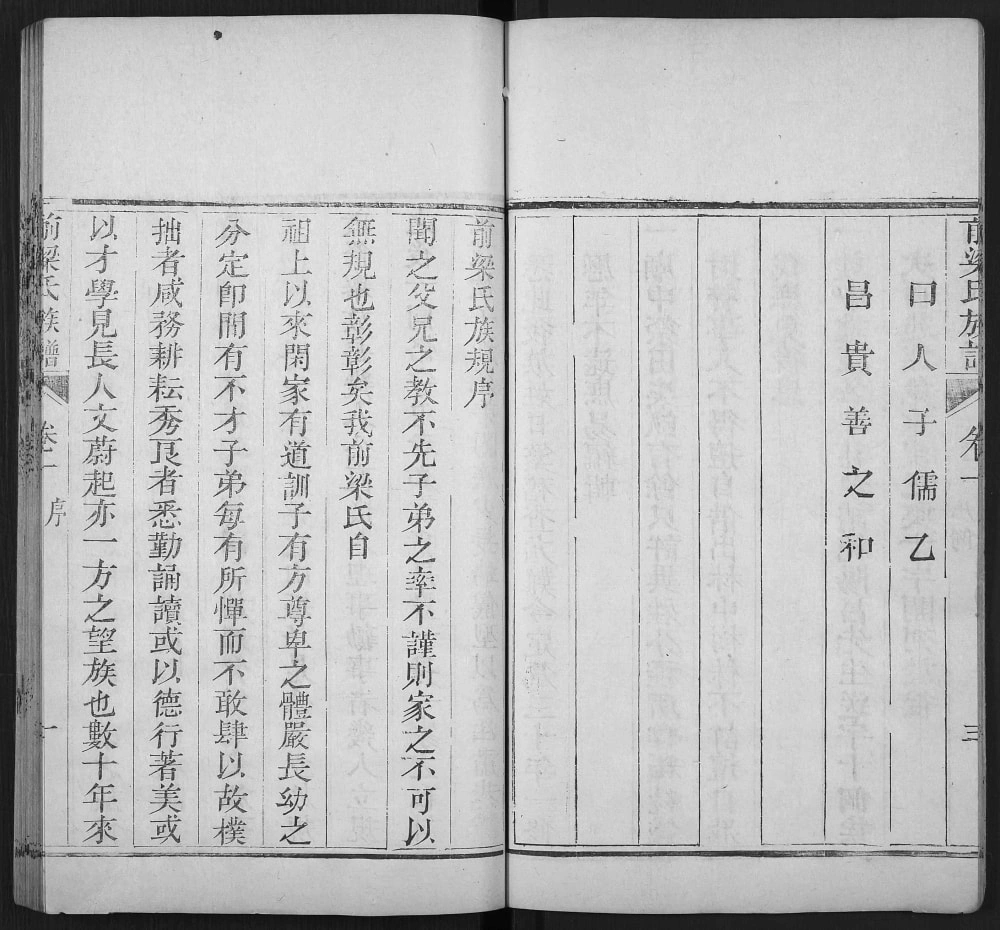 前梁氏族譜 卷一 三
日人子儒乙
昌貴善之和
前梁氏族規序
聞之父兄之教不先子弟之率不謹則家之不可以
無規也彰彰矣我前梁氏自
祖上以來閑家有道訓子有方尊卑之體嚴長幼之
分定卽間有不才子弟每有所憚而不敢肆以故樸
拙者咸務耕耘秀良者悉勤誦讀或以德行著美或
以才學見長人文蔚起亦一方之望族也數十年來
前梁氏族譜 卷一 序 一